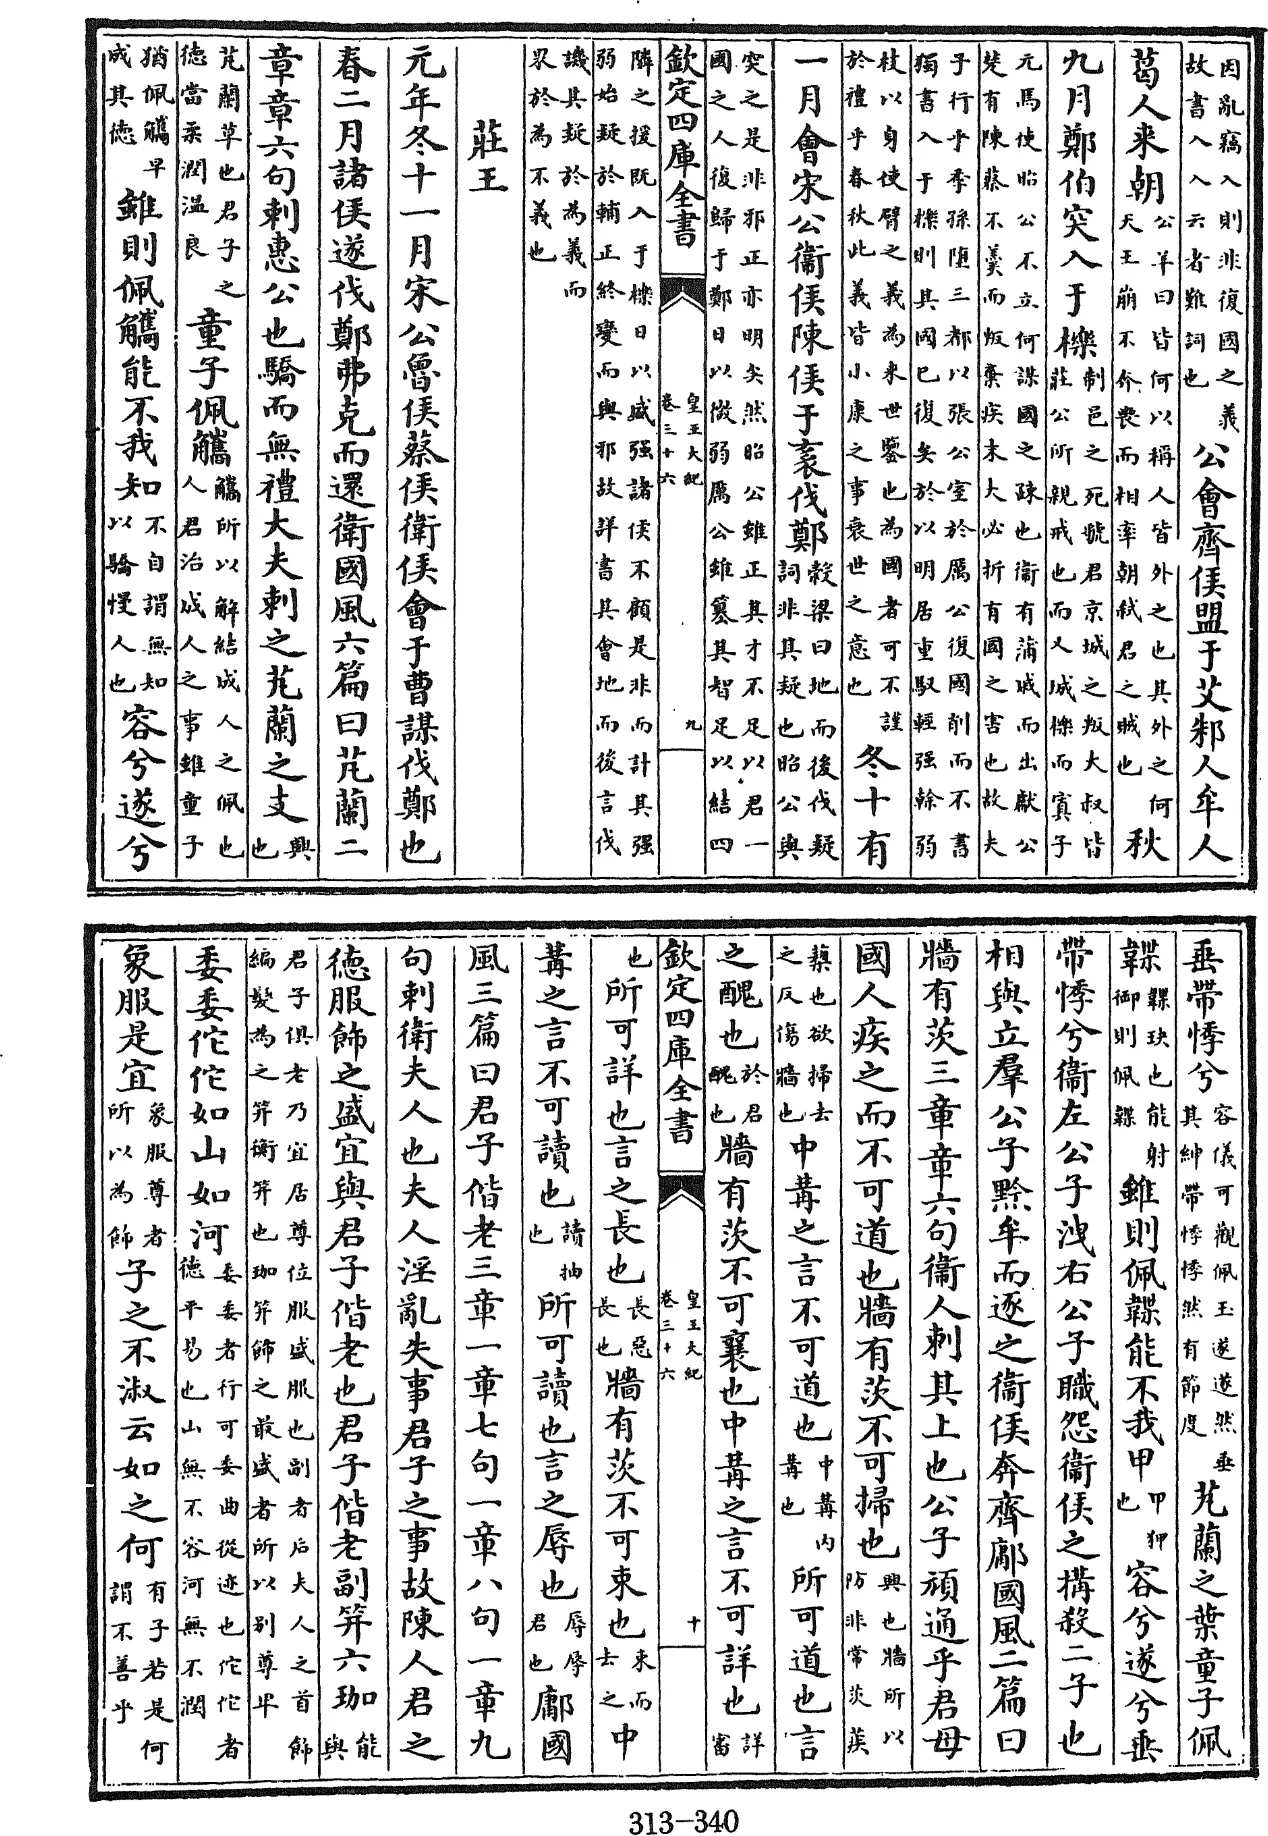 因亂竊入則非復國之義故書入入云者難詞也公會齊侯盟于艾邾人牟人
葛人来朝公羊曰皆何以稱人皆外之也其外之何天王崩不奔喪而相率朝弑君之賊也秋
九月鄭伯突入于櫟制邑之死虢君京城之叛大叔皆莊公所親戒也而又城櫟而寘子
元焉使昭公不立何謀國之疎也衞有蒲戚而出獻公楚有陳蔡不羹而叛棄疾末大必折有國之害也故夫
子行乎季孫墮三都以張公室於厲公復國削而不書獨書入于櫟則其國已復矣於以明居重馭輕强榦弱
枝以身使臂之義為来世鑒也為國者可不謹於禮乎春秋此義皆小康之事衰世之意也冬十有
一月會宋公衞侯陳侯于袤伐鄭榖梁曰地而後伐疑詞非其疑也昭公與
突之是非邪正亦明矣然昭公雖正其才不足以君一國之人復歸于鄭日以微弱厲公雖簒其智足以結四
欽定四庫全書 皇王大紀卷三十六 九
隣之援既入于櫟日以盛强諸侯不顧是非而計其强弱始疑於輔正終變而與邪故詳書其會地而後言伐
譏其疑於為義而果於為不義也
莊王
元年冬十一月宋公魯侯蔡侯衛侯會于曹謀伐鄭也
春二月諸侯遂伐鄭弗克而還衛國風六篇曰芃蘭二
章章六句刺惠公也驕而無禮大夫刺之芃蘭之支興也
芃蘭草也君子之德當柔潤温良童子佩觿觿所以解結成人之佩也人君治成人之事雖童子
猶佩觿早成其徳雖則佩觿能不我知不自謂無知以驕慢人也容兮遂兮
垂帶悸兮容儀可觀佩玉遂遂然垂其紳帶悸悸然有節度芃蘭之葉童子佩
韘韘玦也能射御則佩韘雖則佩韘能不我甲甲狎也容兮遂兮垂
帶悸兮衞左公子洩右公子職怨衞侯之搆殺二子也
相與立羣公子黔牟而逐之衞侯奔齊鄘國風二篇曰
牆有茨三章章六句衞人刺其上也公子頑通乎君母
國人疾之而不可道也牆有茨不可掃也興也牆所以防非常茨蒺
藜也欲掃去之反傷牆也中冓之言不可道也中冓内冓也所可道也言
之醜也於君醜也牆有茨不可襄也中冓之言不可詳也詳審
欽定四庫全書 皇王大紀卷三十六 十
也所可詳也言之長也長惡長也牆有茨不可束也束而去之中
冓之言不可讀也讀抽也所可讀也言之辱也辱辱君也鄘國
風三篇曰君子偕老三章一章七句一章八句一章九
句刺衛夫人也夫人淫亂失事君子之事故陳人君之
德服飾之盛宜與君子偕老也君子偕老副笄六珈能與
君子俱老乃宜居尊位服盛服也副者后夫人之首飾編髮為之笄衡笄也珈笄飾之最盛者所以别尊卑
委委佗佗如山如河委委者行可委曲從迹也佗佗者德平易也山無不容河無不潤
象服是宜象服尊者所以為飾子之不淑云如之何有子若是何謂不善乎
313-340